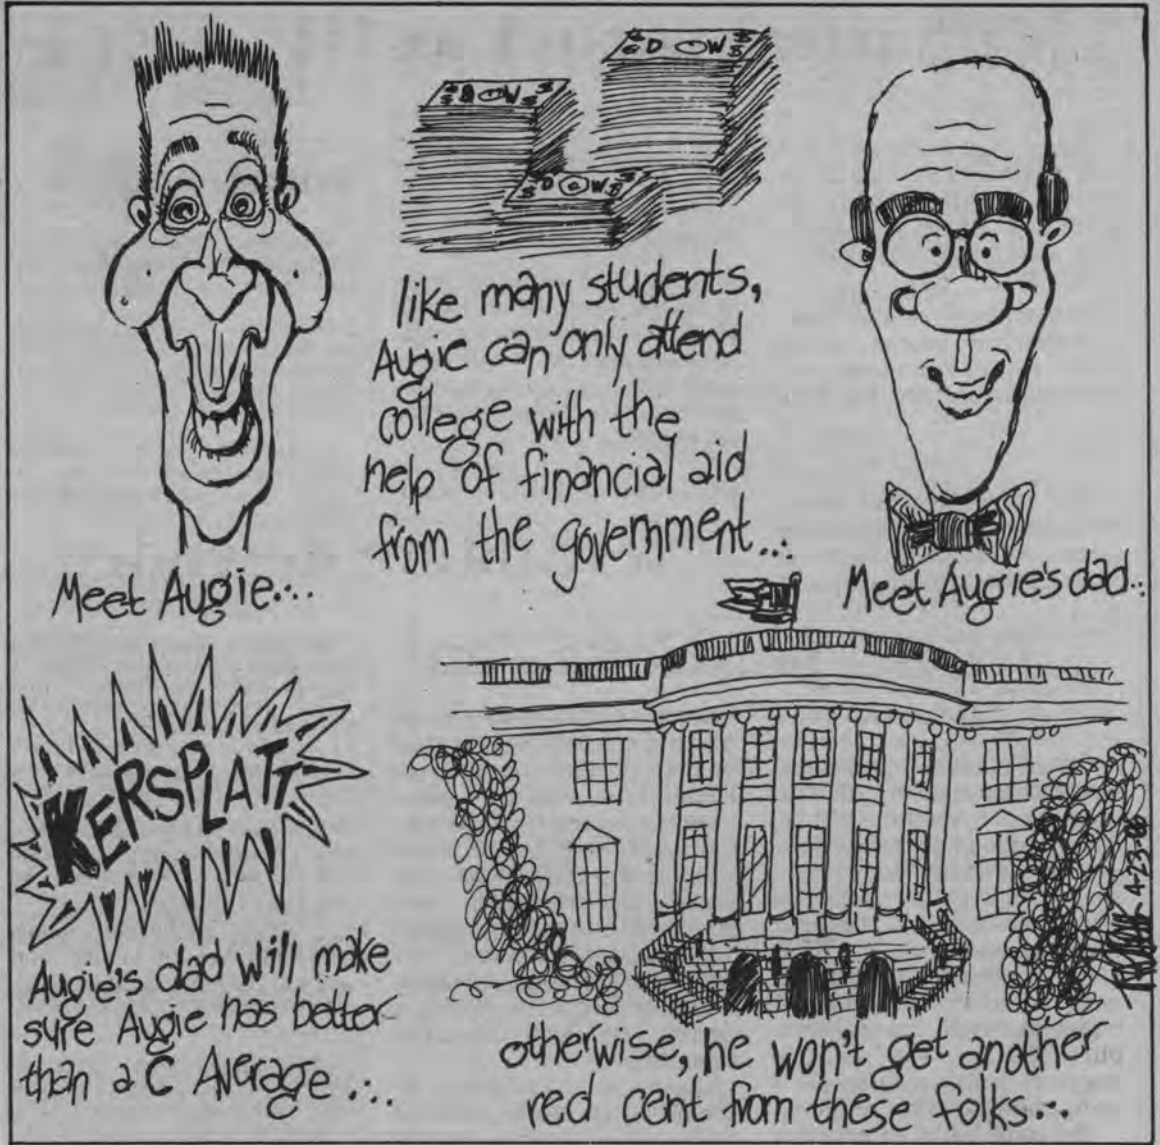 $ D W $
$ D W $
$ D W $
like many students,
Augie can only attend
college with the
help of financial aid
from the government...
Meet Augie...
Meet Augie's dad...
KERSPLATT
Augie's dad will make
sure Augie has better
than a C Average...
otherwise, he won't get another
red cent from these folks...
4-23-86